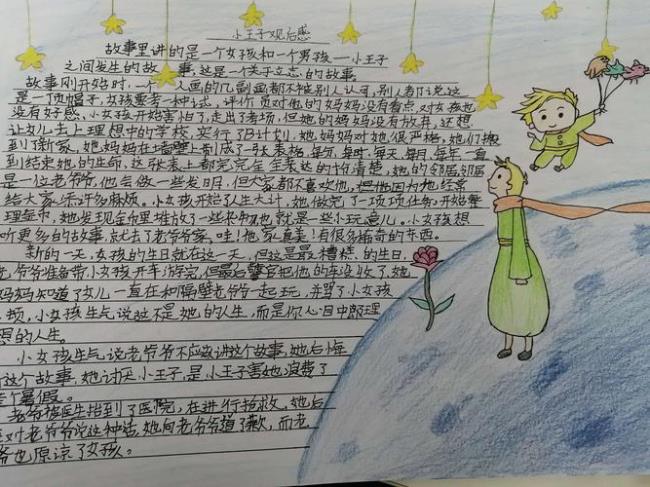 小王子观后感
故事里讲的是一个女孩和一个男孩—小王子
之间发生的故事,这是一个关于立志的故事。
故事刚开始时,一个 人画的几副画都不被别人认可,别人都说这
是一顶帽子,女孩要考一种试,评价员对他的妈妈没有看点,对女孩也
没有好感,小女孩开始害怕了,走出了考场,但她的妈妈没有放弃,还想
让女儿去上理想中的学校,实行了B计划,她妈妈对她很严格,她们搬
到了新家,她妈妈在墙壁上制成了一张表格,每分,每时,每天,每月,每年一直
到结束她的生命,这张表上都完完全全表达的十分清楚,她的邻居
是一位老爷爷,他会做一些发明,但大家都不喜欢他,
给大家添许多麻烦。小女孩开始了人生大计,她做完了一项项任务,开始整
理金币,她发现金币里堆放了一些 也就是一些小玩意儿。小女孩想
听更多的故事,就去了老爷爷家,哇!他家真美!有很多稀奇的东西。
新的一天,女孩的生日就在这一天,但这是最糟糕的生日,
爷爷准备带小女孩开车游完,但最后警官把他的车没收了,她
妈妈知道了女儿一直在和隔壁老爷一起玩,并骂了小女孩
顿,小女孩生气说这不是她的人生,而是你心目中那理
想的人生。
小女孩生气,说老爷爷不应该讲这个故事,她后悔
这个故事,她讨厌小王子,是小王子害她浪费了
个暑假。
老爷爷被医生抬到了医院,在进行抢救,她后
对老爷爷说这种话,她向老爷爷道了歉,而老
爷也原谅了女孩。